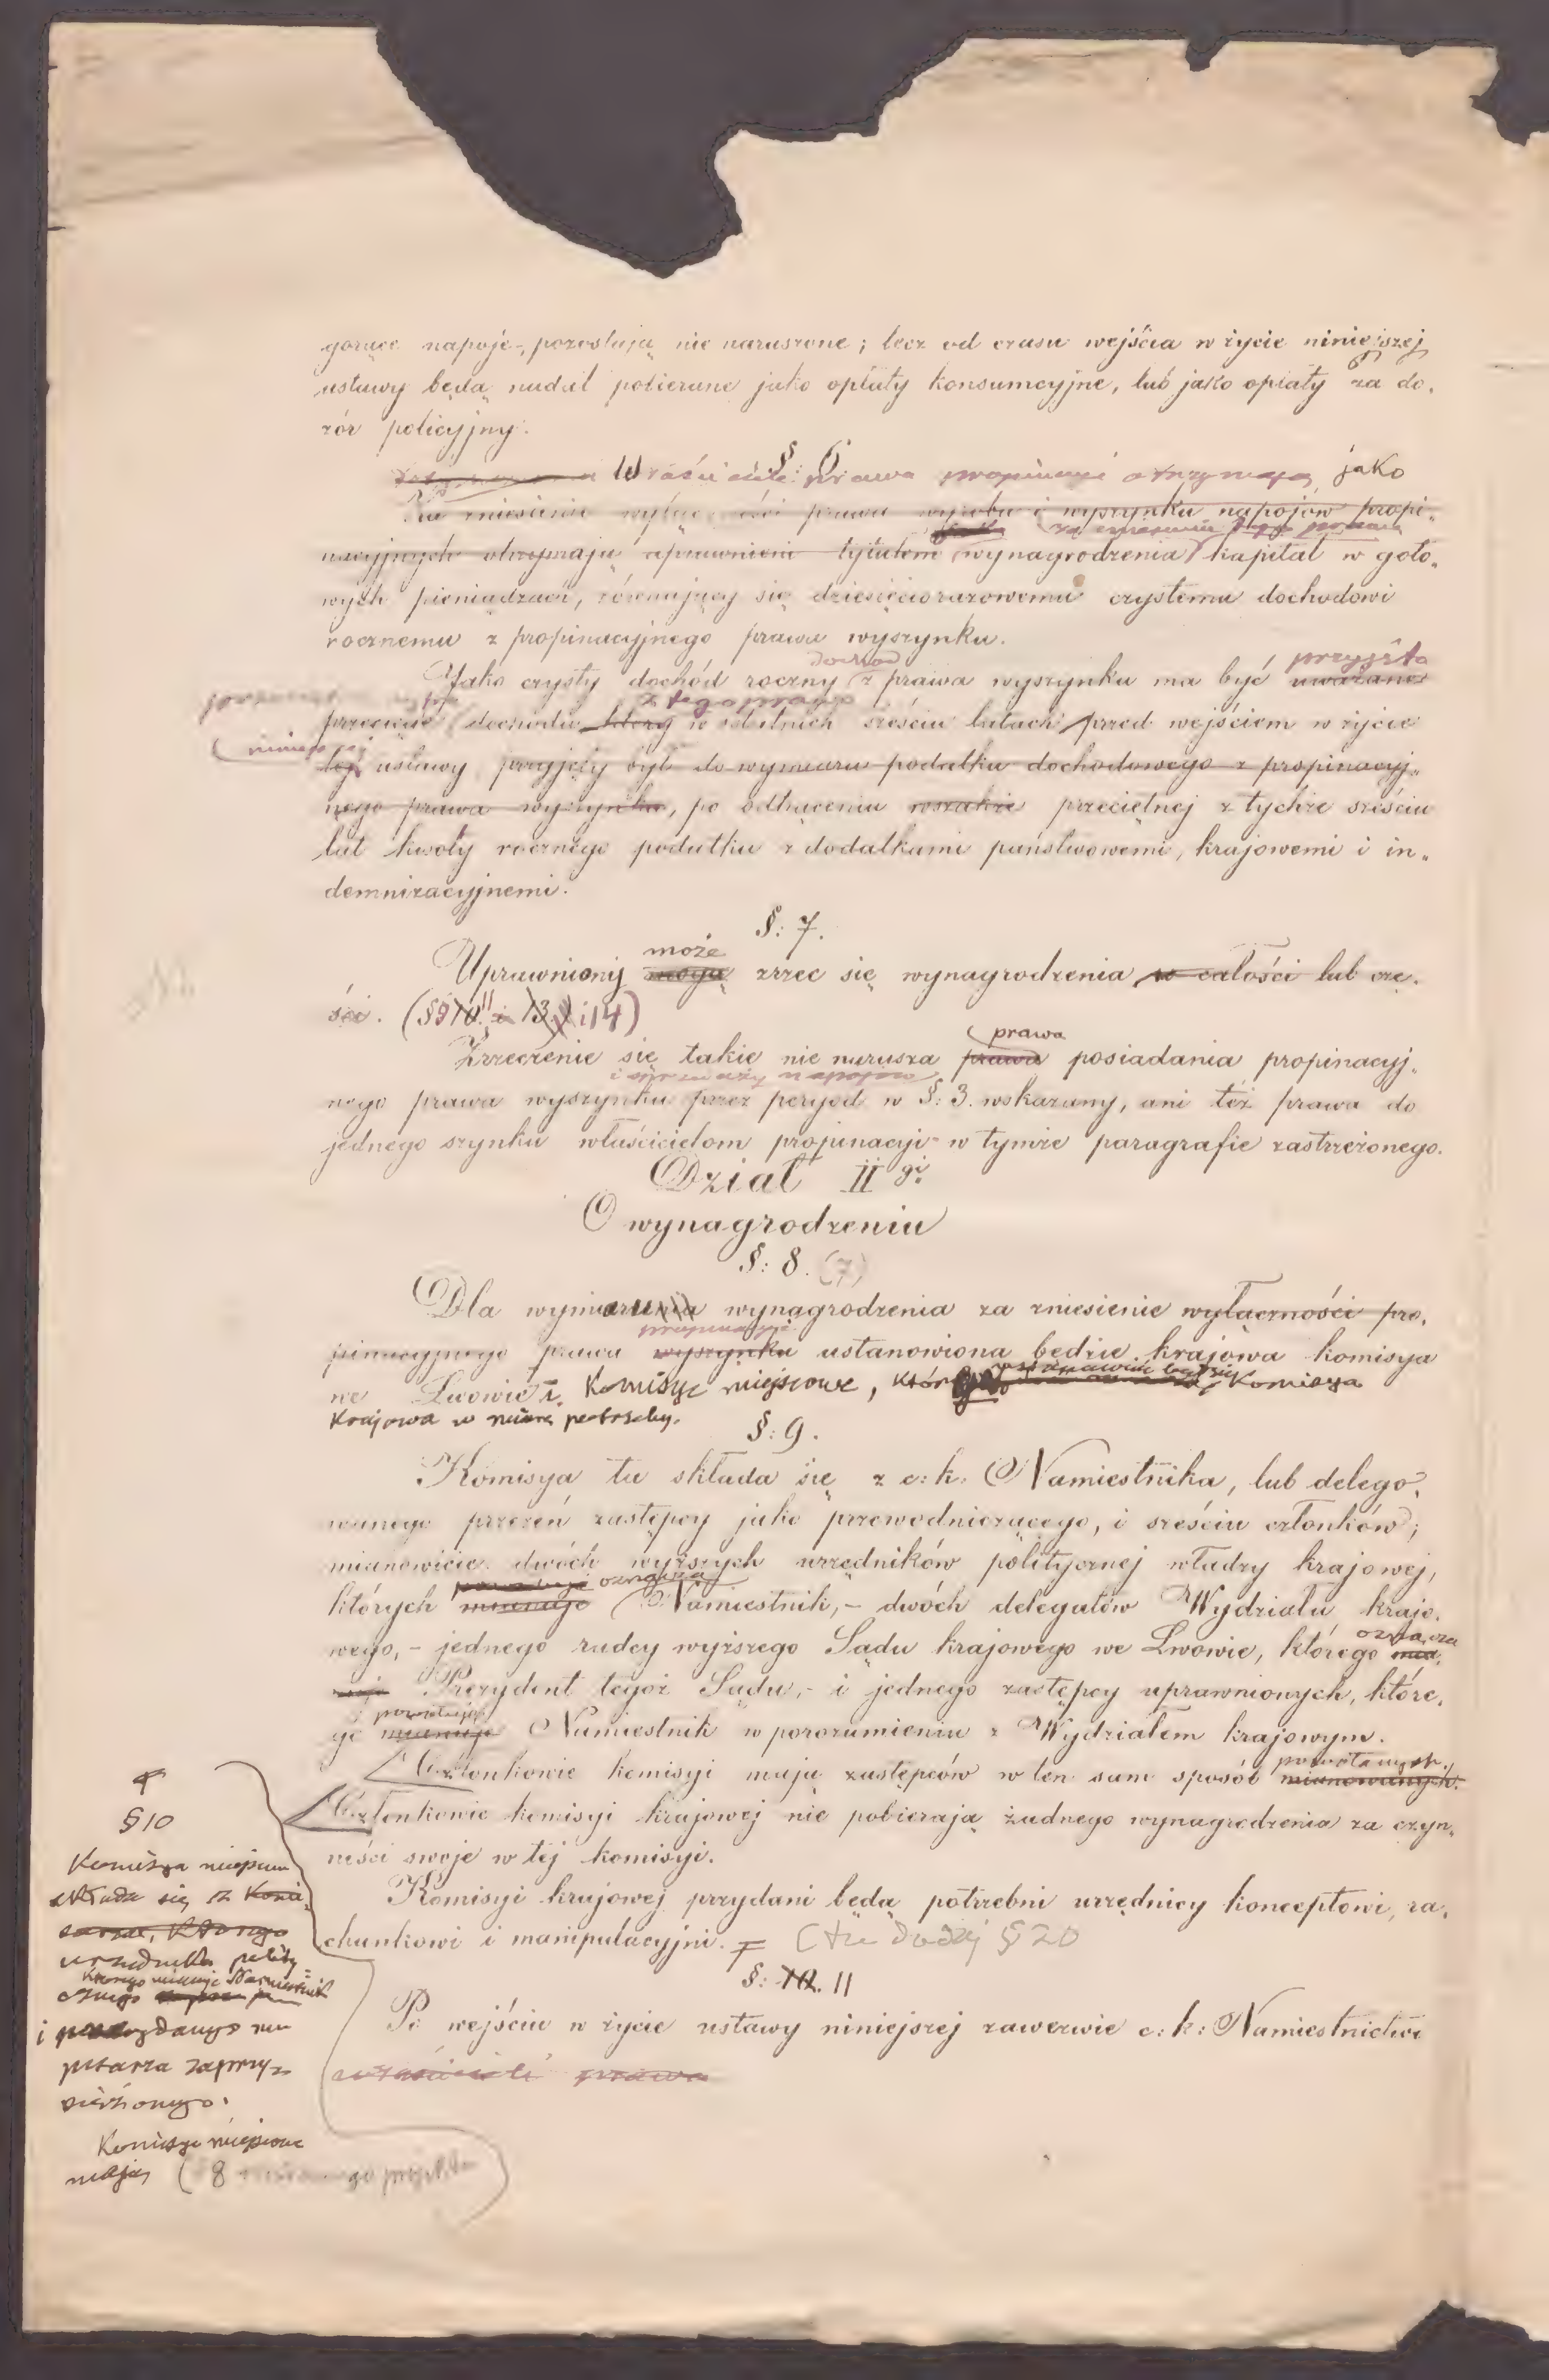 gorące napoje, pozostają nie naruszone; lecz od czasu wejścia w życie niniejszej
ustawy będą nadal pobierane jako opłaty konsumcyjne, lub jako opłaty za do„
zór policyjny.
§: 6.
Właściciele prawa propinacyi otrzymają jako
Za zniesienie wyłączności prawa wyrobu i wyszynku napojów propi„
za zniesienie tego prawa
nacyjnych otrzymają uprawnieni tytułem wynagrodzenia kapitał w goto„
wych pieniądzach, równający się dziesięciorazowemu czystemu dochodowi
rocznemu z propinacyjnego prawa wyszynku.
dochod przyjęta
Jako czysty dochód roczny z prawa wyszynku ma być uważane
z tego prawa
przecięcie dochodu który w ostatnich sześciu latach przed wejściem w życie
niniejszej
tej ustawy przyjęty był do wymiaru podatku dochodowego z propinacyj„
nego prawa wyszynku, po odtrąceniu wszakże przeciętnej z tychże sześciu
lat kwoty rocznego podatku z dodatkami państwowemi, krajowemi i in„
demnizacyjnemi.
§: 7.
może
Uprawniony mogą zrzec się wynagrodzenia w całości lub czę„
ści. (§ 9 10 11 i 13.) i 14)
prawa
Zrzeczenie się takie nie narusza prawa posiadania propinacyj„
i sprzedaży napojów
nego prawa wyszynku przez peryod w §: 3. wskazany, ani też prawa do
jednego szynku właścicielom propinacyi w tymże paragrafie zastrzeżonego.
Dział II gi
O wynagrodzeniu
§: 8. (7)
Dla wymiaru wynagrodzenia za zniesienie wyłączności pro„
propinacyi
pinacyjnego prawa wyszynku ustanowiona będzie krajowa komisya
we Lwowie i Komisye miejscowe, które ustanawiać będzie Komisya
Krajowa w miarę potrzeby.
§: 9.
Komisya ta składa się z c: k: Namiestnika, lub delego„
wanego przezeń zastępcy jako przewodniczącego, i sześciu członków;
mianowicie dwóch wyższych urzędników politycznej władzy krajowej,
oznacza
których mianuje Namiestnik, – dwóch delegatów Wydziału krajo„
wego, – jednego radcy wyższego Sądu krajowego we Lwowie, którego mia„
oznacza
nuje Prezydent tegoż Sądu, – i jednego zastępcy uprawnionych, które„
powołuje
go mianuje Namiestnik w porozumieniu z Wydziałem krajowym.
powołanych.
Członkowie komisyi mają zastępców w ten sam sposób mianowanych.
Członkowie komisyi krajowej nie pobierają żadnego wynagrodzenia za czyn„
ności swoje w tej komisyi.
Komisyi krajowej przydani będą potrzebni urzędnicy konceptowi, ra„
chunkowi i manipulacyjni. (tu dodaj § 20
§: 10. 11
Po wejściu w życie ustawy niniejszej zawezwie c: k: Namiestnictwo
właścicieli prawa
§ 10
Komisya miejscowa
składa się z Komi„
sarza, którego
urzędnika polity„
którego mianuje Namiestnik
cznego
i przydanego mu
pisarza zaprzy„
siężonego.
Komisye miejscowe
mają (8 projektu